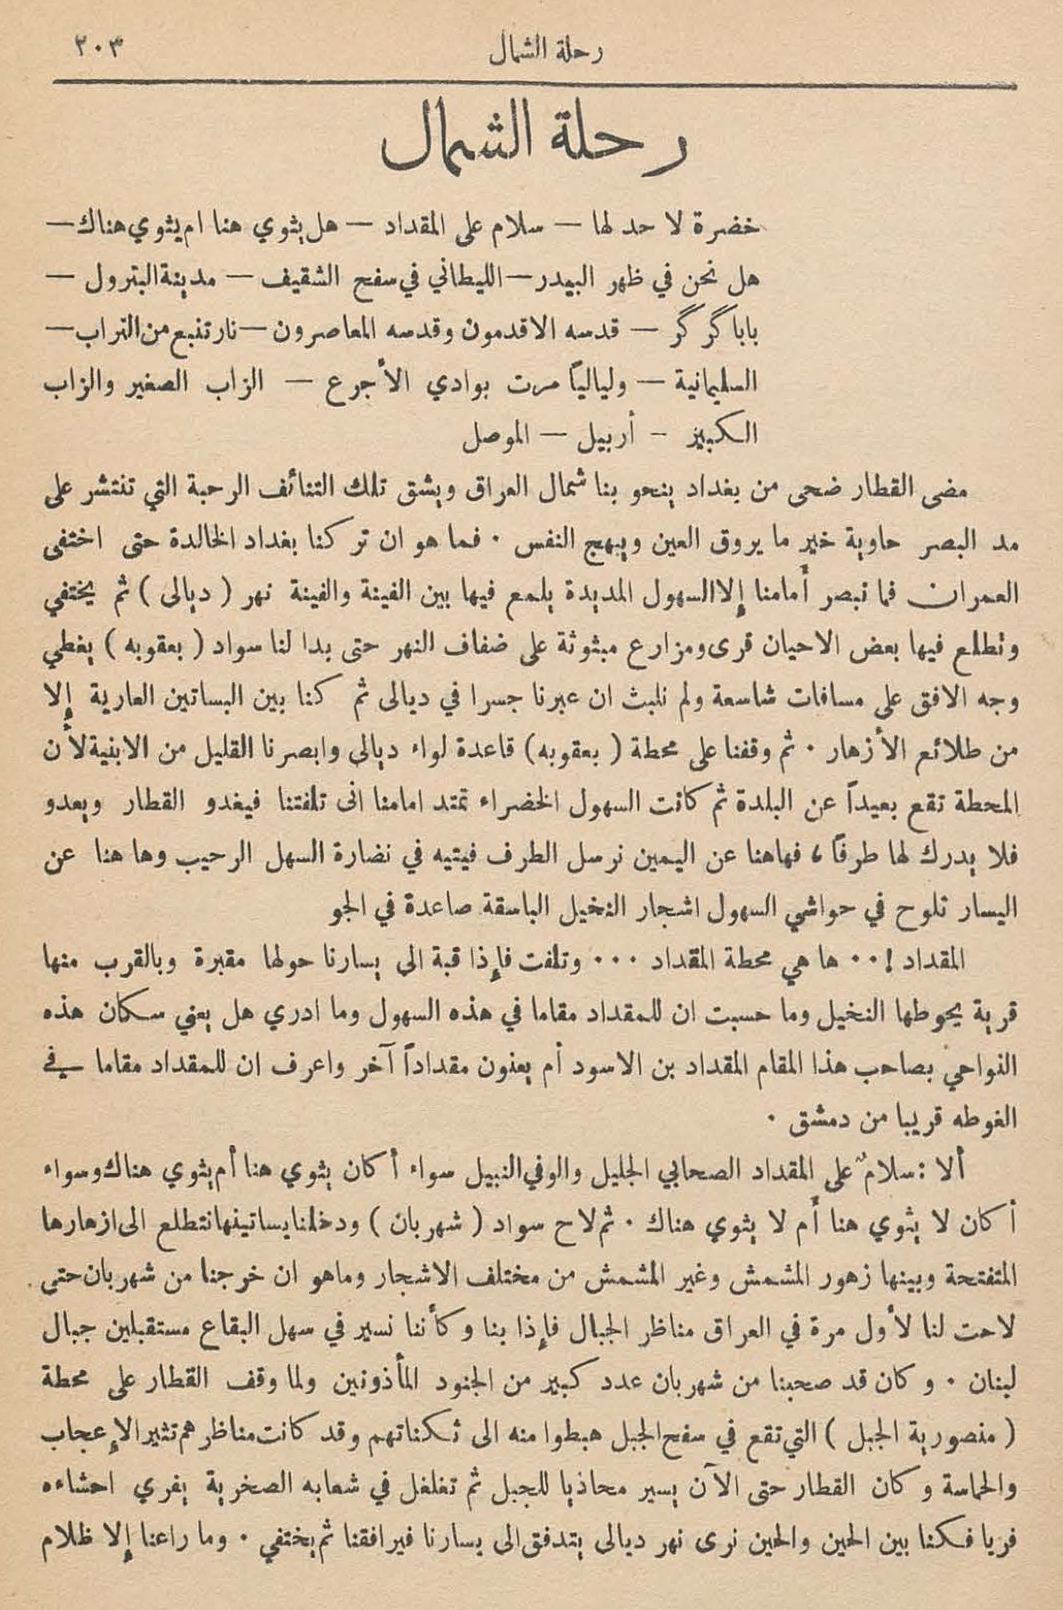 رحلة الشمال ٢٠٣
رحلة الشمال
خضرة لا حد لها — سلام على المقداد — هل يثوي هنا ام يثوي هناك —
هل نحن في ظهر البيدر — الليطاني في سفح الشقيف — مدينة البترول —
بابا گر گر — قدسه الاقدمون وقدسه المعاصرون — نار تنبع من التراب —
السليمانية — ولياليًا مرت بوادي الأجرع — الزاب الصغير والزاب
الكبير - أربيل — الموصل
مضى القطار ضحى من بغداد ينحو بنا شمال العراق ويشق تلك التنائف الرحبة التي تنتشر على
مد البصر حاوية خير ما يروق العين ويبهج النفس . فما هو ان تركنا بغداد الخالدة حتى اختفى
العمران فما نبصر أمامنا إلا السهول المديدة يلمع فيها بين الفينة والفينة نهر ( ديالى ) ثم يختفي
وتطلع فيها بعض الاحيان قرى ومزارع مبثوثة على ضفاف النهر حتى بدا لنا سواد ( بعقوبه ) يغطي
وجه الافق على مسافات شاسعة ولم نلبث ان عبرنا جسرا في ديالى ثم كنا بين البساتين العارية إلا
من طلائع الأزهار . ثم وقفنا على محطة ( بعقوبه ) قاعدة لواء ديالى وابصرنا القليل من الابنية لأن
المحطة تقع بعيداً عن البلدة ثم كانت السهول الخضراء تمتد امامنا انى تلفتنا فيغدو القطار ويعدو
فلا يدرك لها طرفاً ، فهاهنا عن اليمين نرسل الطرف فيتيه في نضارة السهل الرحيب وها هنا عن
اليسار تلوح في حواشي السهول اشجار النخيل الباسقة صاعدة في الجو
المقداد ! . . ها هي محطة المقداد . . . وتلفت فإذا قبة الى يسارنا حولها مقبرة وبالقرب منها
قرية يحوطها النخيل وما حسبت ان للمقداد مقاما في هذه السهول وما ادري هل يعني سكان هذه
النواحي بصاحب هذا المقام المقداد بن الاسود أم يعنون مقداداً آخر واعرف ان للمقداد مقاما في
الغوطه قريبا من دمشق .
ألا : سلامٌ على المقداد الصحابي الجليل والوفي النبيل سواء أكان يثوي هنا أم يثوي هناك وسواء
أكان لا يثوي هنا أم لا يثوي هناك . ثم لاح سواد ( شهربان ) ودخلنا بساتينها نتطلع الى ازهارها
المتفتحة وبينها زهور المشمش وغير المشمش من مختلف الاشجار وماهو ان خرجنا من شهربان حتى
لاحت لنا لأول مرة في العراق مناظر الجبال فإذا بنا وكأننا نسير في سهل البقاع مستقبلين جبال
لبنان . وكان قد صحبنا من شهربان عدد كبير من الجنود المأذونين ولما وقف القطار على محطة
( منصورية الجبل ) التي تقع في سفح الجبل هبطوا منه الى ثكناتهم وقد كانت مناظرهم تثير الإعجاب
والحماسة وكان القطار حتى الآن يسير محاذيا للجبل ثم تغلغل في شعابه الصخرية يفري احشاءه
فريا فكنا بين الحين والحين نرى نهر ديالى يتدفق الى يسارنا فيرافقنا ثم يختفي . وما راعنا إلا ظلام